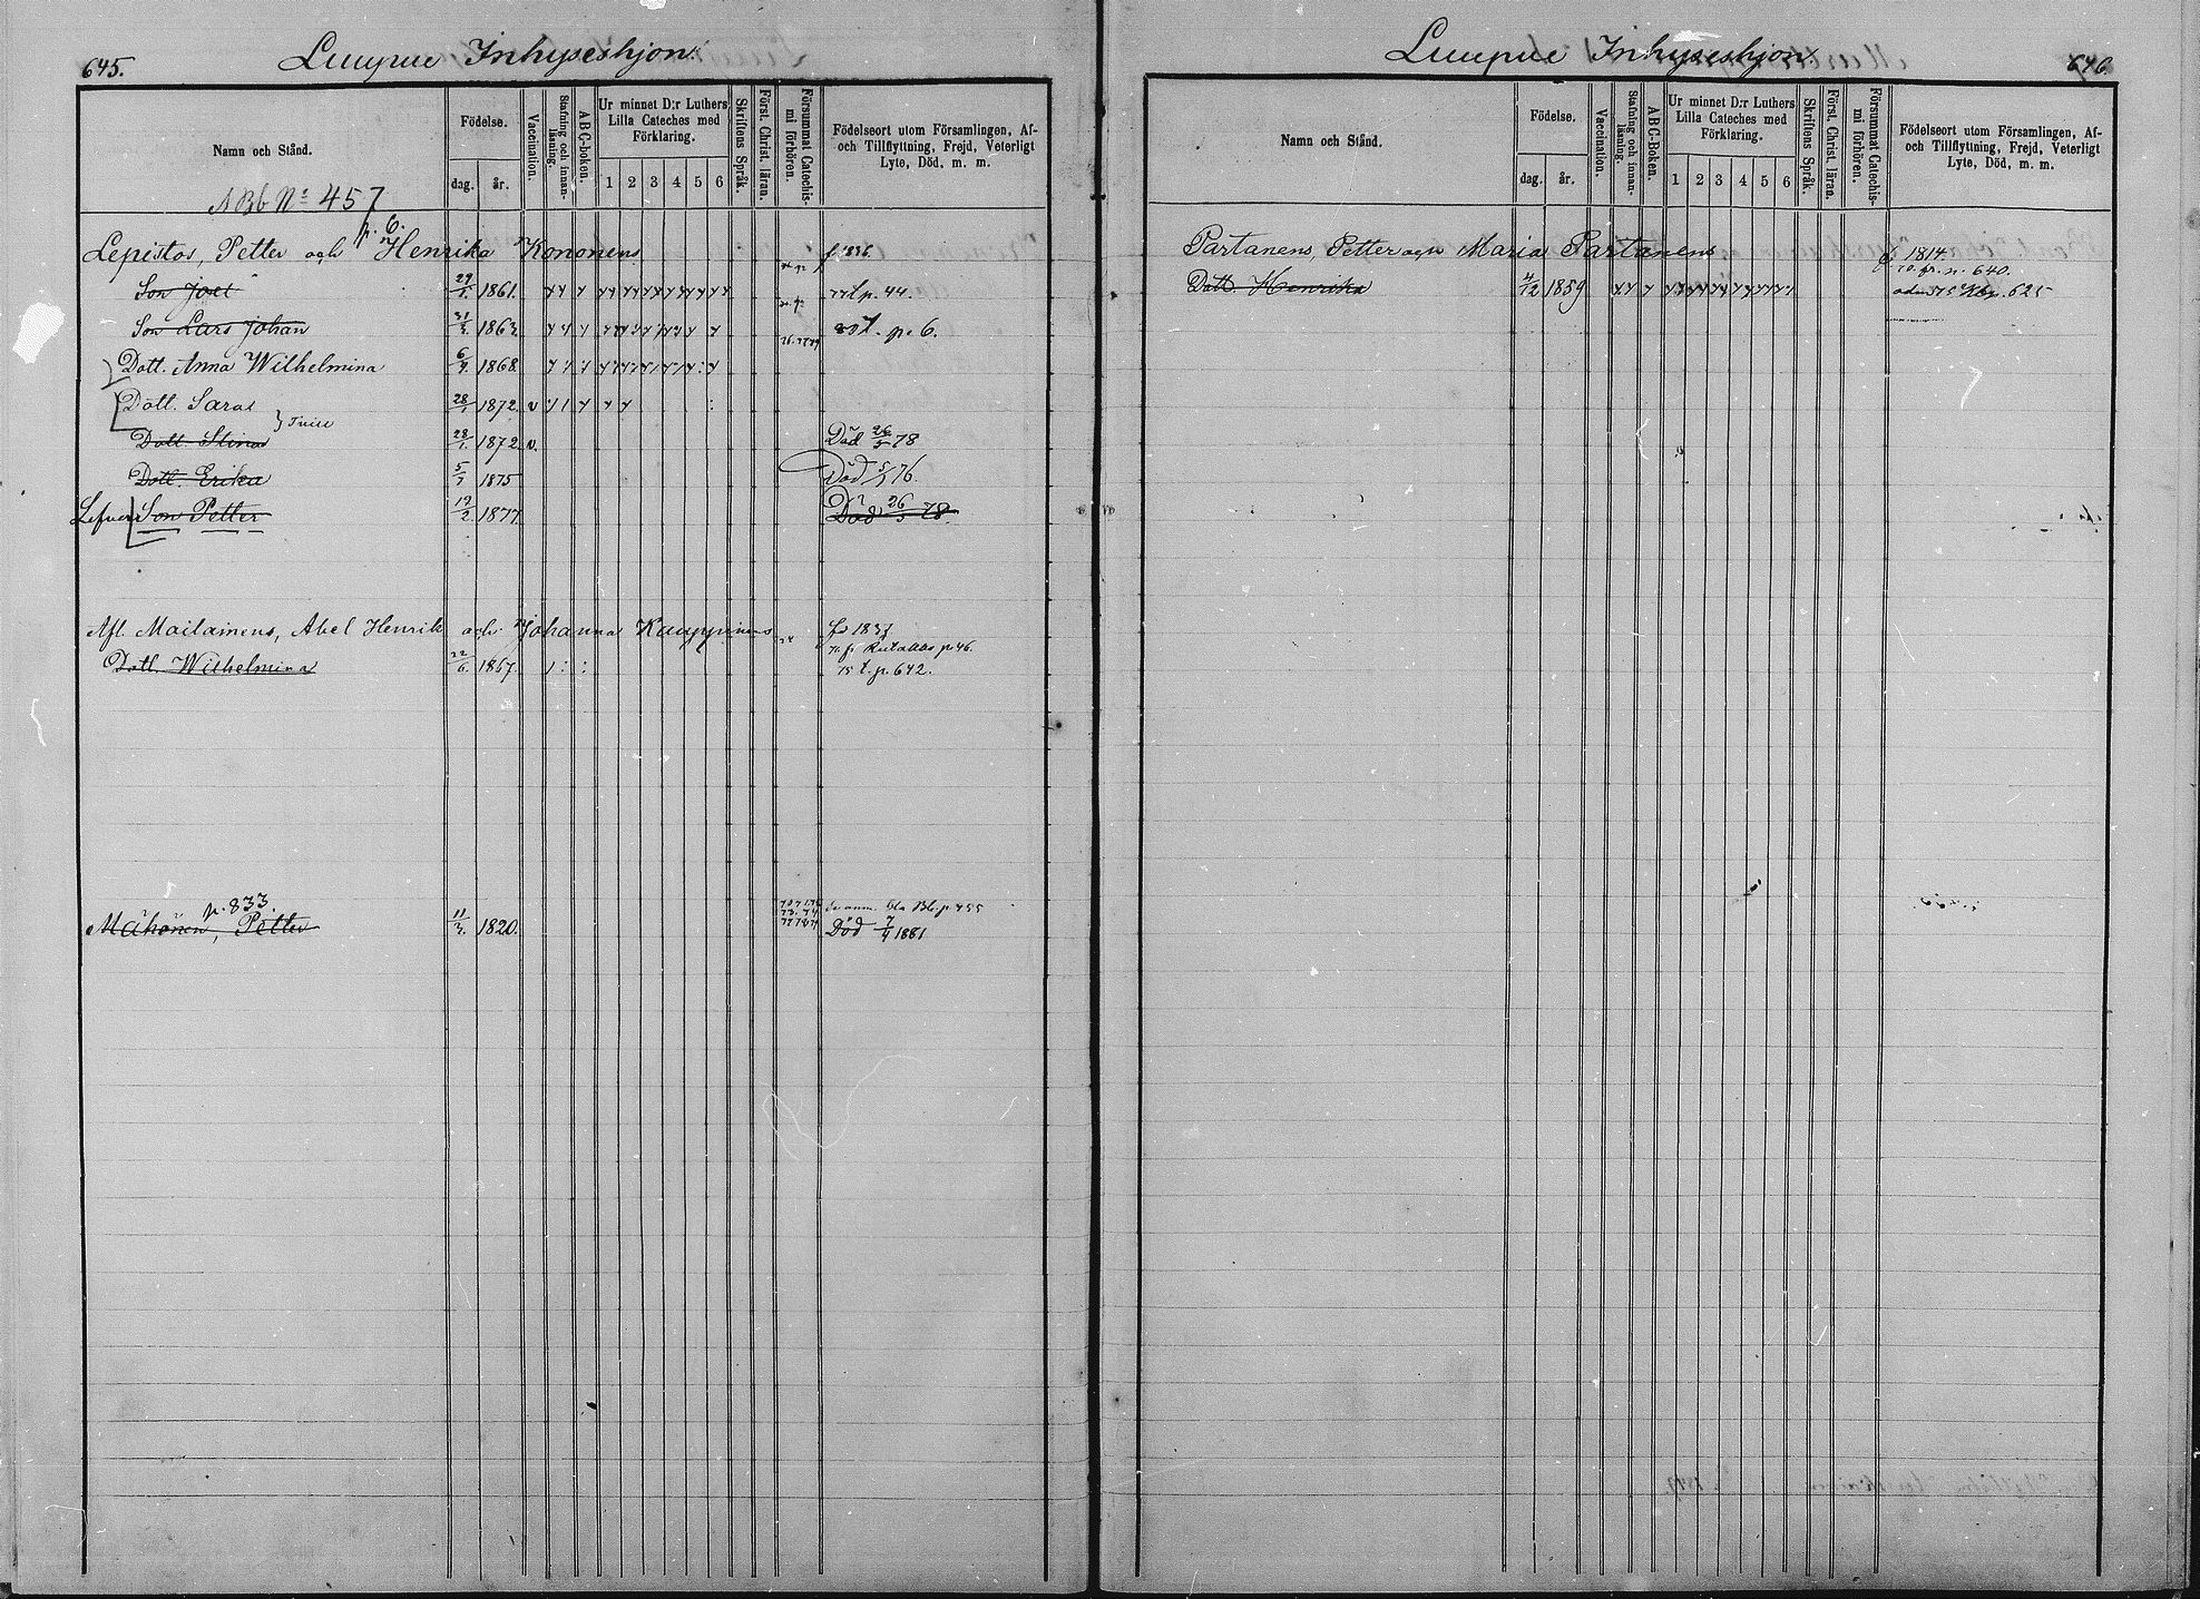 645. Luupue Inhyseshjon.
Namn och Stånd.
Födelse.
dag. år.
Vaccination.
Stafning och innanläsning.
ABC-boken.
Ur minnet D:r Luthers
Lilla Cateches med
Förklaring.
1 2 3 4 5 6
Skriftens Språk.
Först. Christ. läran.
Försummat Catechismi förhören.
Födelseort utom Församlingen, Af-
och Tillflyttning, Frejd, Veterligt
Lyte, Död, m. m.
ABb No 457
p. 6.
Lepistos, Petter och Henrika Kononens f. 1836.
Son Joel 29/1. 1861. 77 t. p. 44.
Son Lars Johan 31/3. 1863. 80 t. p. 6.
Dott. Anna Wilhelmina 6/4. 1868.
Dott. Sara 28/1. 1872. v
Dott. Stina 28/1. 1872. v. Död 26/5 78
Dott. Erika 5/7 1875 Död 76.
Lefver Son Petter 12/2. 1877. Död 26/5 78.
Afl. Mailainens, Abel Henrik och Johanna Kauppinens
Dott. Wilhelmina 22/6. 1857. 75 t. p. 642.
p. 833.
Mähönen, Petter 11/3. 1820. Död 7/4 1881
Luupue Inhyseshjon. 646.
Namn och Stånd.
Födelse.
dag. år.
Vaccination.
Stafning och innanläsning.
ABC-Boken.
Ur minnet D:r Luthers
Lilla Cateches med
Förklaring.
1 2 3 4 5 6
Skriftens Språk.
Först. Christ. läran.
Försummat Catechismi förhören.
Födelseort utom Församlingen, Af-
och Tillflyttning, Frejd, Veterligt
Lyte, Död, m. m.
Partanens, Petter och Maria Partanens f. 1814.
70. fr. p. 640.
Dott. Henrika 4/12 1859 p. 625